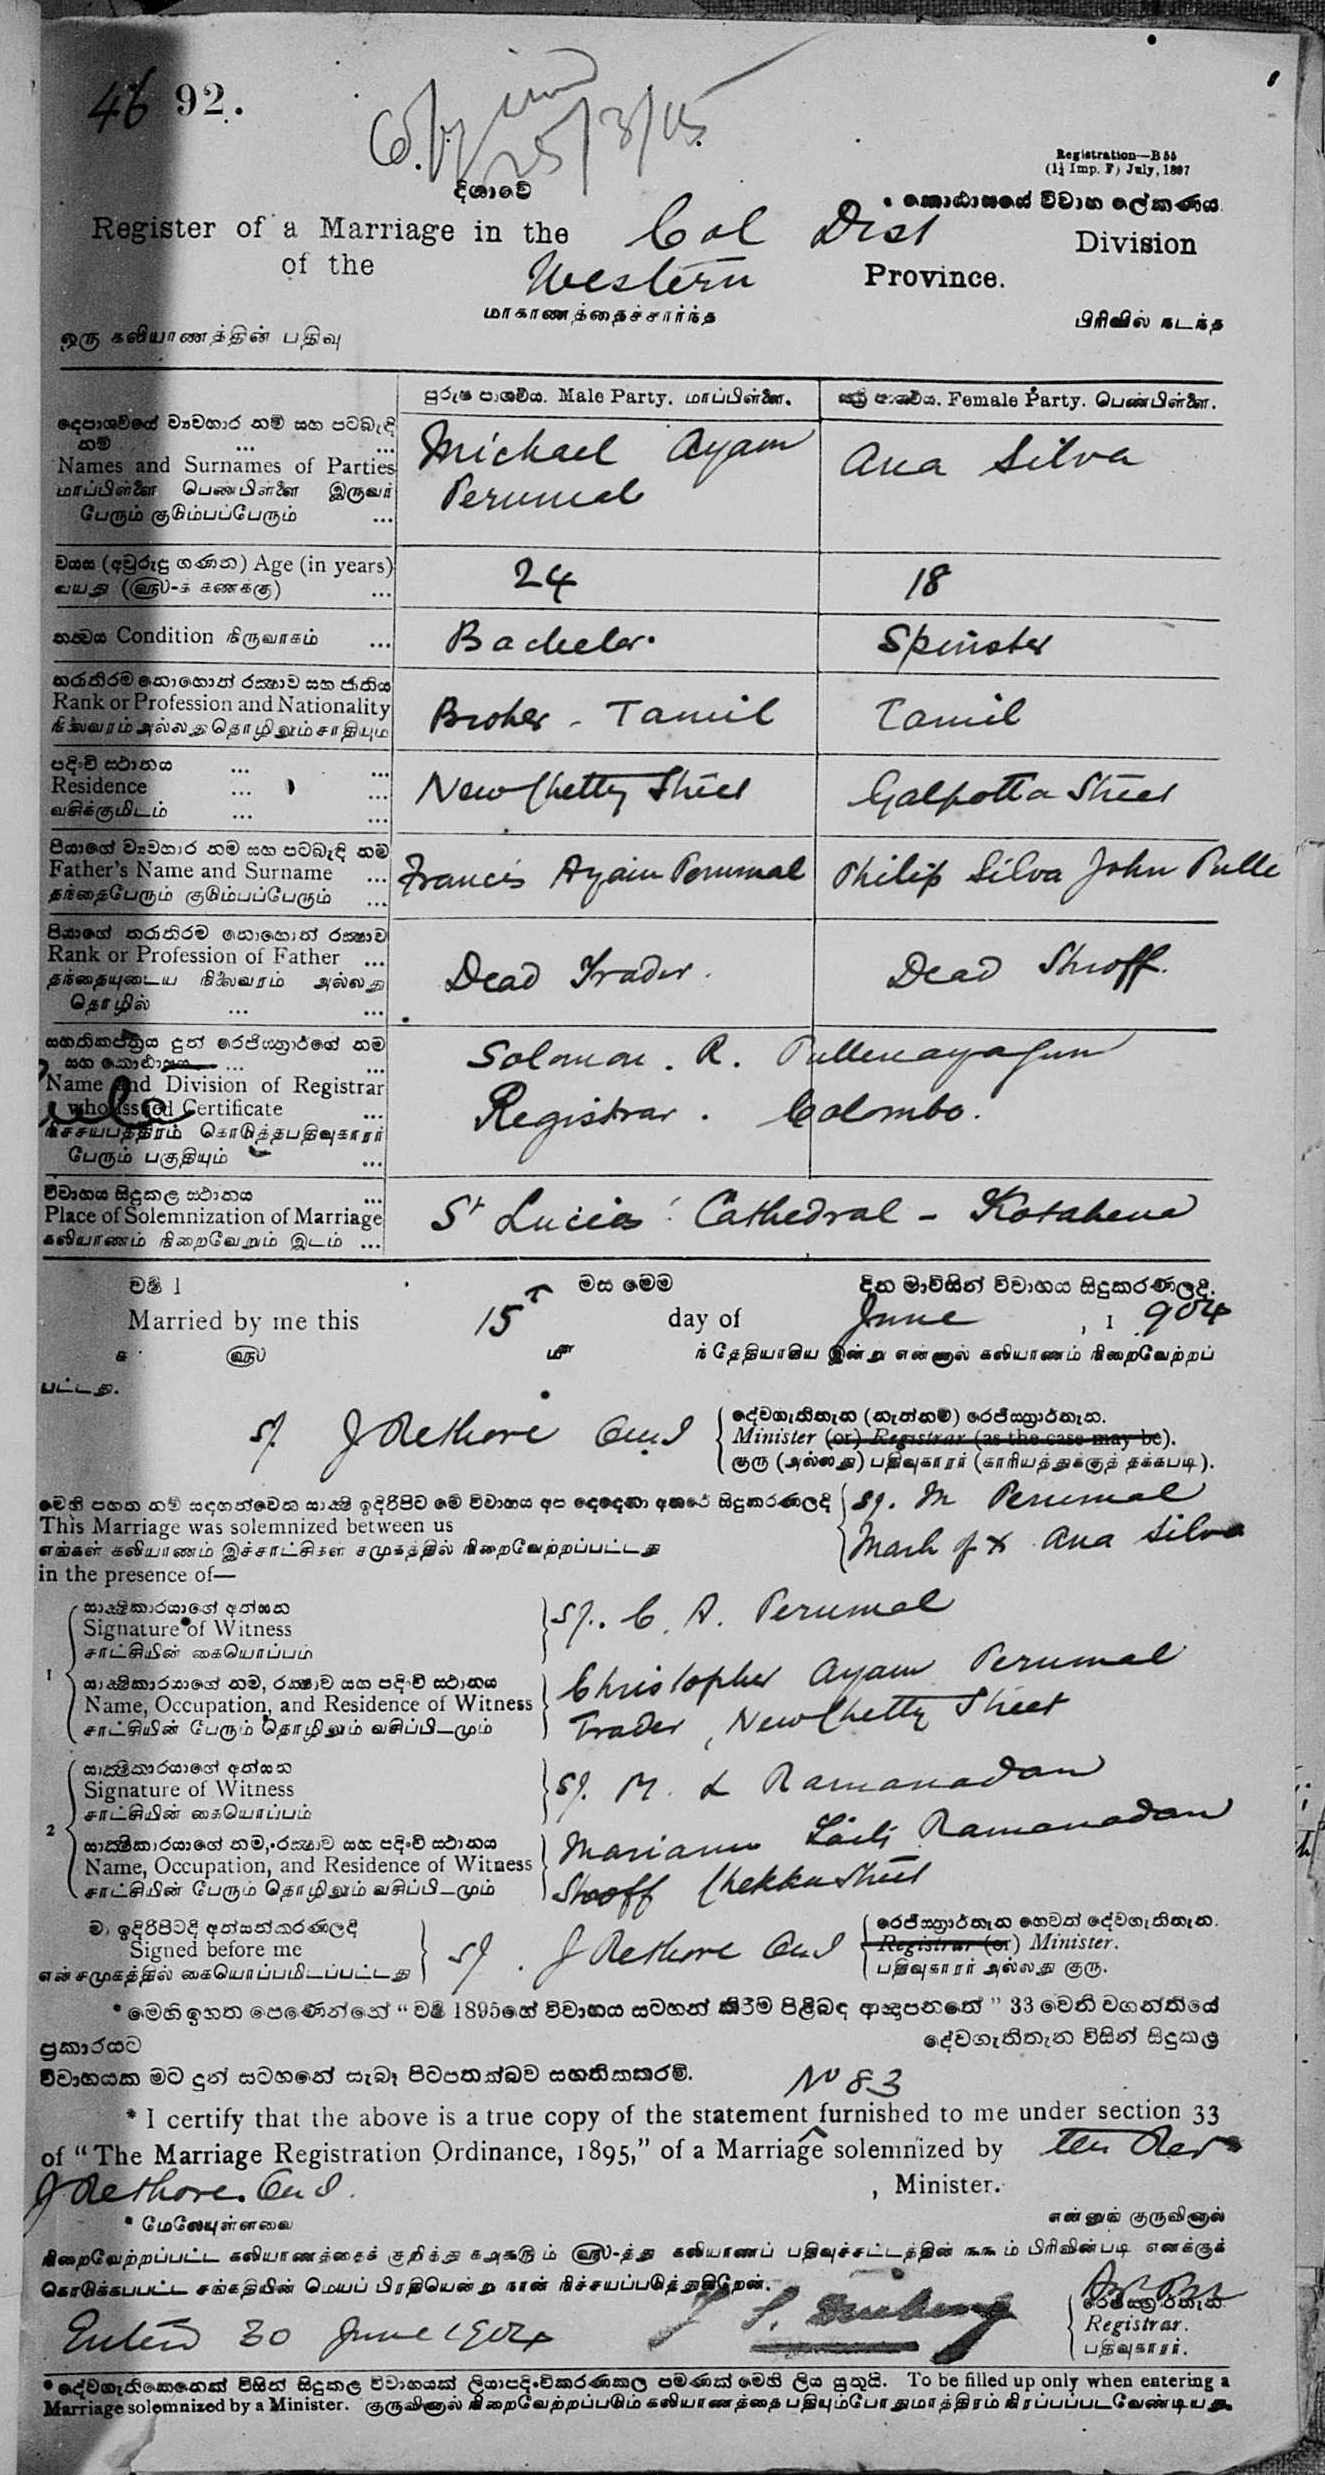 46 92.
25/3/15
Registration—B 55
(1¼ Imp. F) July, 1897
දිශාවේ
කොඨාසයේ විවාහ ලේකණය
Register of a Marriage in the Col Dist Division
of the Western Province.
மாகாணத்தைச்சார்ந்த
ஒரு கலியாணத்தின் பதிவு
பிரிவில் நடந்த
පුරුෂ පාශර්වය. Male Party. மாப்பிள்ளை.
ස්ත්‍රී පාශර්වය. Female Party. பெண்பிள்ளை.
දෙපාශර්වයේ ව්‍යවහාර නම් සහ පටබැඳි
නම් ... ...
Names and Surnames of Parties
மாப்பிள்ளை பெண்பிள்ளை இருவர்
பேரும் குடும்பப்பேரும் ...
Michael Ayam
Perumal
Ana Silva
වයස (අවුරුදු ගණන) Age (in years)
வயது (௵-க் கணக்கு) ...
24
18
තත්වය Condition நிருவாகம் ...
Bachelor.
Spinster
තරාතිරම නොහොත් රක්ෂාව සහ ජාතිය
Rank or Profession and Nationality
நிலவரம் அல்லது தொழிலும் சாதியும்
Broker - Tamil
Tamil
පදිංචි ස්ථානය ... ...
Residence ... ...
வசிக்குமிடம் ... ...
New Chetty Street
Galpotta Street
පියාගේ ව්‍යවහාර නම සහ පටබැඳි නම
Father's Name and Surname ...
தந்தைபேரும் குடும்பப்பேரும் ...
Francis Ayam Perumal
Philip Silva John Pulle
පියාගේ තරාතිරම නොහොත් රක්ෂාව
Rank or Profession of Father ...
தந்தையுடைய நிலவரம் அல்லது
தொழில் ... ...
Dead Trader.
Dead Shroff.
සහතිකපත්‍රය දුන් රෙජිස්ත්‍රාර්ගේ නම
සහ කොඨාසය ... ...
Name and Division of Registrar
who issued Certificate ...
நிச்சயபத்திரம் கொடுத்தபதிவுகாரர்
பேரும் பகுதியும் ...
Solomon. R. Pullenayagum
Registrar. Colombo.
විවාහය සිදුකල ස්ථානය ...
Place of Solemnization of Marriage
கலியாணம் நிறைவேறும் இடம் ...
St Lucia's Cathedral - Kotahena
වර්ෂ 1 මස මෙම දින මාවිසින් විවාහය සිදුකරණලදි.
Married by me this 15 day of June , 1 904
௵ ௴ ந் தேதியாகிய இன்று என்னால் கலியாணம் நிறைவேற்றப்
பட்டது.
Sg. J Rethore Omi
දේවගැතිතැන (නැත්නම්) රෙජිස්ත්‍රාර්තැන.
Minister (or) Registrar (as the case may be).
குரு (அல்லது) பதிவுகாரர் (காரியத்துக்குத் தக்கபடி).
මෙහි පහත නම් සඳහන්වෙන සාක්ෂි ඉදිරිපිට මේ විවාහය අප දෙදෙනා අතරේ සිදුකරණලදි
This Marriage was solemnized between us
எங்கள் கலியாணம் இச்சாட்சிகள் சமுகத்தில் நிறைவேற்றப்பட்டது
in the presence of—
Sg. M Perumal
Mark of X Ana Silva
සාක්ෂිකාරයාගේ අත්සන
Signature of Witness
சாட்சியின் கையொப்பம்
Sg. C. A. Perumal
1
සාක්ෂිකාරයාගේ නම, රක්ෂාව සහ පදිංචි ස්ථානය
Name, Occupation, and Residence of Witness
சாட்சியின் பேரும் தொழிலும் வசிப்பிடமும்
Christopher Ayam Perumal
Trader, New Chetty Street
සාක්ෂිකාරයාගේ අත්සන
Signature of Witness
சாட்சியின் கையொப்பம்
Sg. M. L Ramanadan
2
සාක්ෂිකාරයාගේ නම, රක්ෂාව සහ පදිංචි ස්ථානය
Name, Occupation, and Residence of Witness
சாட்சியின் பேரும் தொழிலும் வசிப்பிடமும்
Ramanadan
Shroff Chekku Street
මා ඉදිරිපිටදි අත්සන්කරණලදි
Signed before me
என் சமுகத்தில் கையொப்பமிடப்பட்டது
Sg. J Rethore Omi
රෙජිස්ත්‍රාර්තැන හෙවත් දේවගැතිතැන.
Registrar (or) Minister.
பதிவுகாரர் அல்லது குரு.
* මෙහි ඉහත පෙණෙන්නේ “වර්ෂ 1895හේ විවාහය සටහන් කිරීම පිළිබඳ ආඥාපනතේ” 33 වෙනි වගන්තියේ
ප්‍රකාරයට දේවගැතිතැන විසින් සිදුකල
විවාහයක මට දුන් සටහනේ සැබෑ පිටපතක්බව සහතිකකරමි.
No 83
* I certify that the above is a true copy of the statement furnished to me under section 33
of “The Marriage Registration Ordinance, 1895,” of a Marriage solemnized by the Rev
J Rethore. Omi. , Minister.
* மேலேயுள்ளவை என்னுங் குருவினால்
நிறைவேற்றப்பட்ட கலியாணத்தைக் குறித்து ௧௮௯௫ம் ௵-த்து கலியாணப் பதிவுச்சட்டத்தின் ௩௩ம் பிரிவின்படி எனக்குக்
கொடுக்கப்பட்ட சங்கதியின் மெய்ப் பிரதியென்று நான் நிச்சயப்படுத்துகிறேன்.
Entered 30 June 1904
රෙජිස්ත්‍රාර්තැන.
Registrar.
பதிவுகாரர்.
* දේවගැතිකෙනෙක් විසින් සිදුකල විවාහයක් ලියාපදිංචිකරණකල පමණක් මෙහි ලිය යුතුයි. To be filled up only when entering a
Marriage solemnized by a Minister. குருவினால் நிறைவேற்றப்படும் கலியாணத்தை பதியும்போதுமாத்திரம் நிரப்பப்படவேண்டியது.